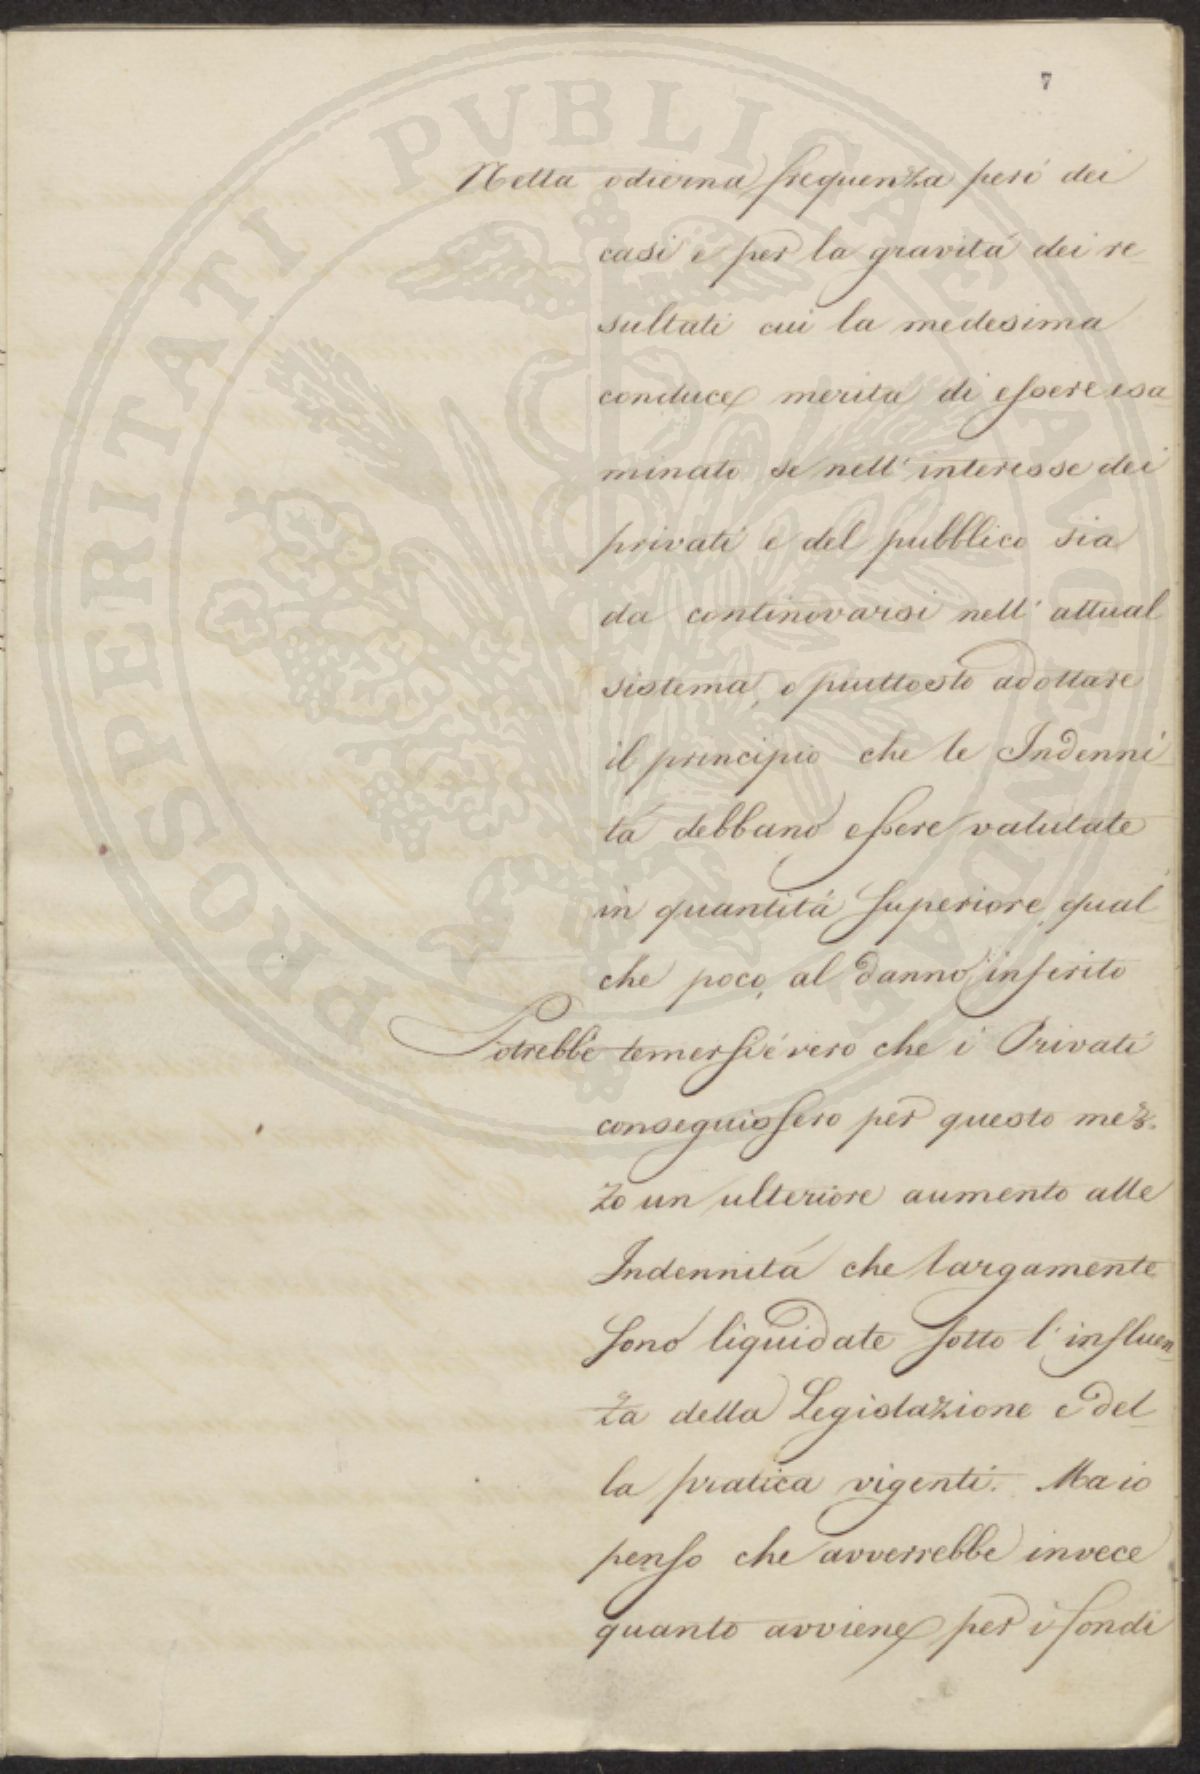 7
Nella odierna frequenza però dei
casi e per la gravità dei re-
sultati cui la medesima
conduce merita di essere esa-
minato se nell'interesse dei
privati e del pubblico sia
da continovarsi nell'attual
sistema, o piuttosto adottare
il principio che le Indenni-
tà debbano essere valutate
in quantità superiore, qual-
che poco, al danno inferito
Potrebbe temersi è vero che i Privati
conseguissero per questo mez-
zo un ulteriore aumento alle
Indennità che largamente
sono liquidate sotto l'influen-
za della Legislazione e del-
la pratica vigenti. Ma io
penso che avverrebbe invece
quanto avviene per i fondi
PROSPERITATI PVBLICAE AVGENDAE